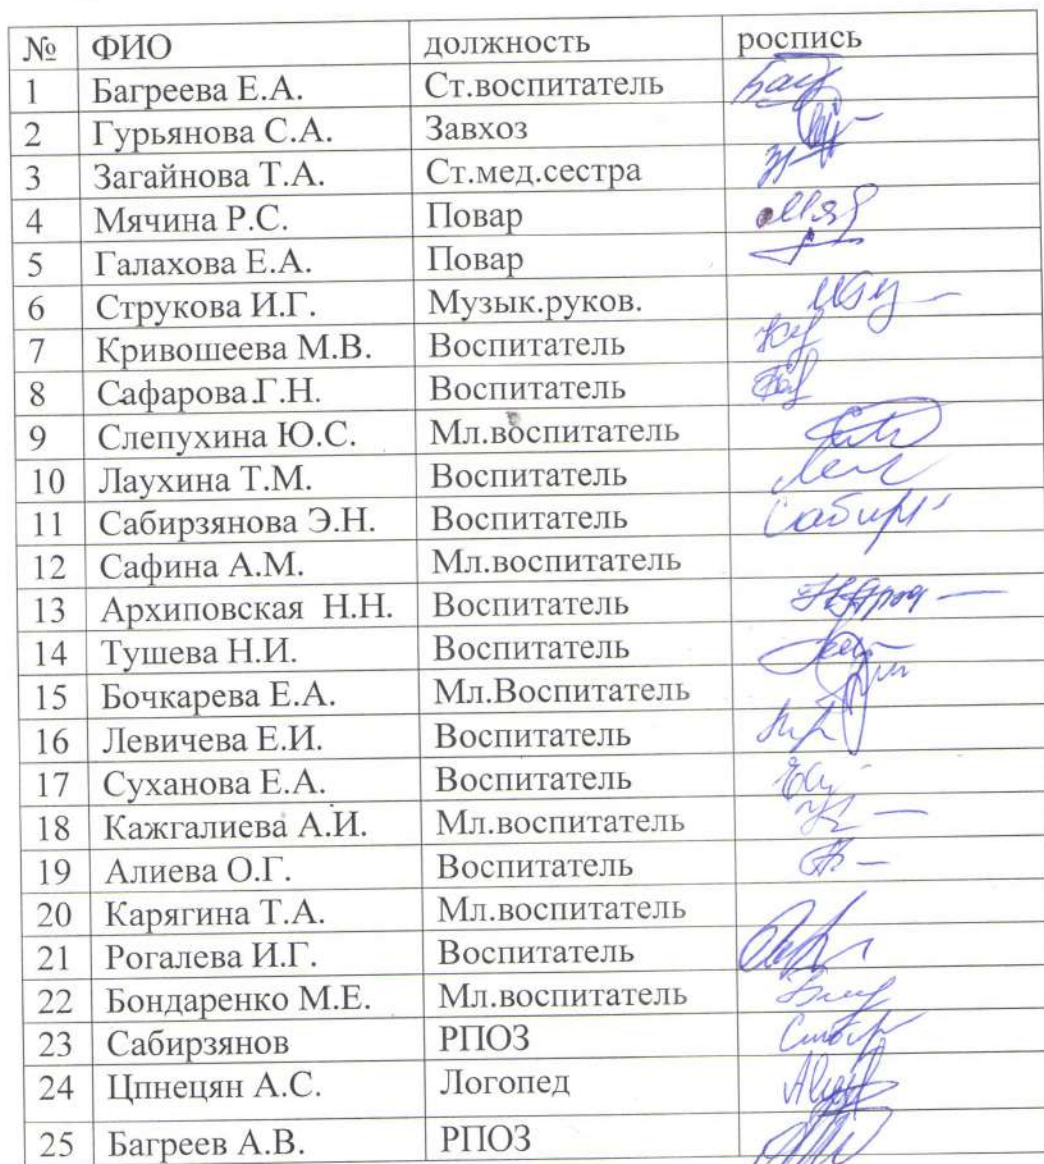 № ФИО должность роспись
1 Багреева Е.А. Ст.воспитатель
2 Гурьянова С.А. Завхоз
3 Загайнова Т.А. Ст.мед.сестра
4 Мячина Р.С. Повар
5 Галахова Е.А. Повар
6 Струкова И.Г. Музык.руков.
7 Кривошеева М.В. Воспитатель
8 Сафарова.Г.Н. Воспитатель
9 Слепухина Ю.С. Мл.воспитатель
10 Лаухина Т.М. Воспитатель
11 Сабирзянова Э.Н. Воспитатель
12 Сафина А.М. Мл.воспитатель
13 Архиповская Н.Н. Воспитатель
14 Тушева Н.И. Воспитатель
15 Бочкарева Е.А. Мл.Воспитатель
16 Левичева Е.И. Воспитатель
17 Суханова Е.А. Воспитатель
18 Кажгалиева А.И. Мл.воспитатель
19 Алиева О.Г. Воспитатель
20 Карягина Т.А. Мл.воспитатель
21 Рогалева И.Г. Воспитатель
22 Бондаренко М.Е. Мл.воспитатель
23 Сабирзянов РПОЗ
24 Цпнецян А.С. Логопед
25 Багреев А.В. РПОЗ